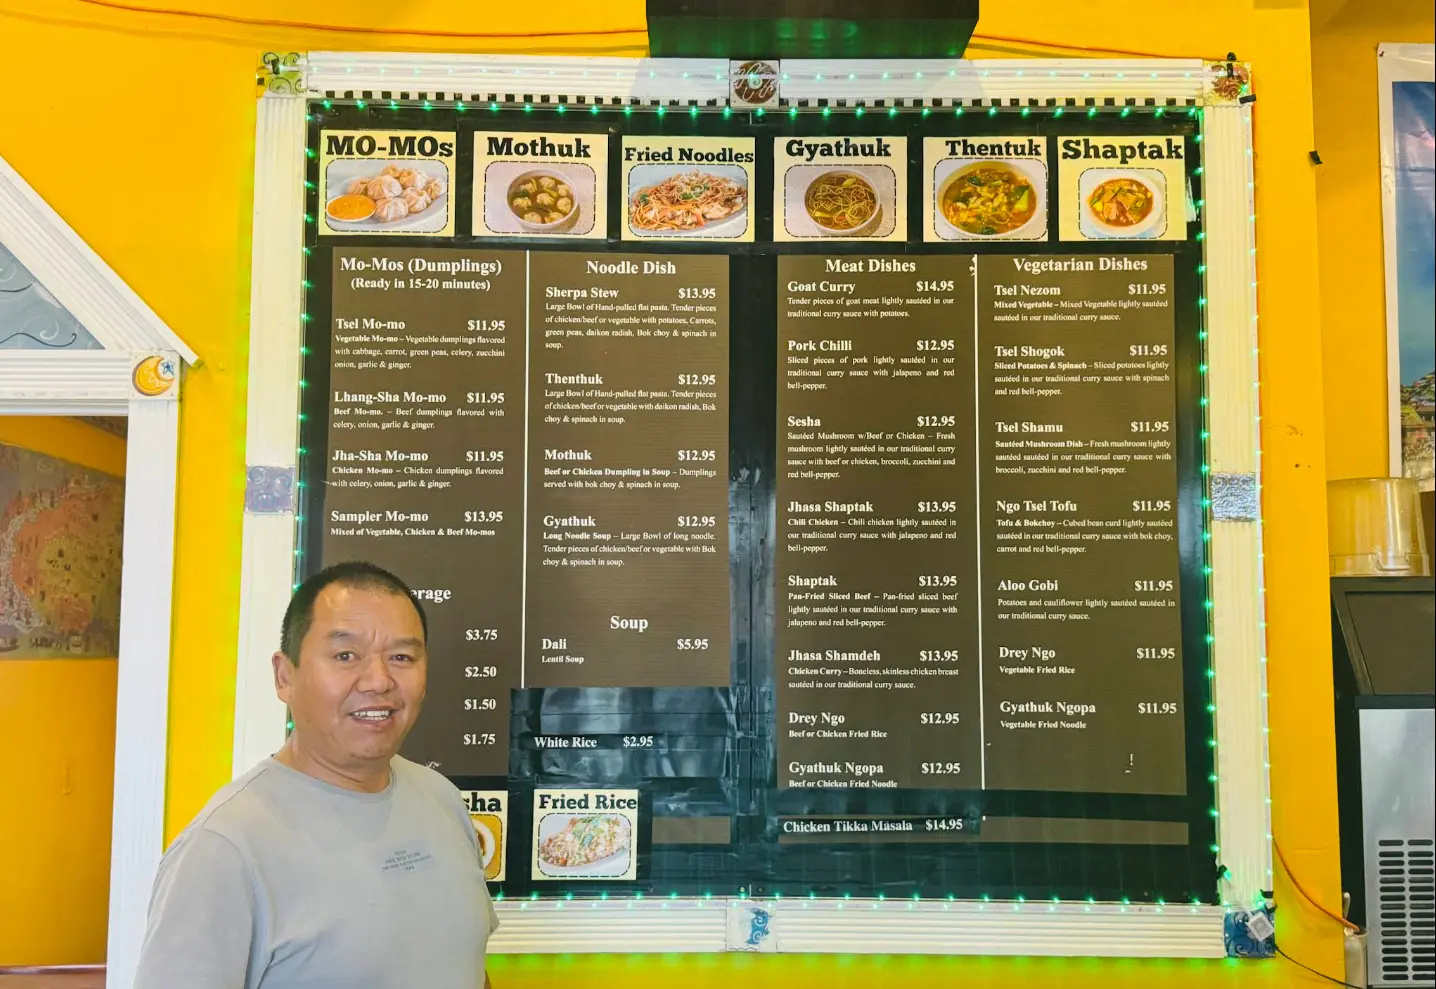 MO-MOs
Mothuk
Fried Noodles
Gyathuk
Thentuk
Shaptak
Mo-Mos (Dumplings)
(Ready in 15-20 minutes)
Tsel Mo-mo $11.95
Vegetable Mo-mo – Vegetable dumplings flavored
with cabbage, carrot, green peas, celery, zucchini
onion, garlic & ginger.
Lhang-Sha Mo-mo $11.95
Beef Mo-mo. – Beef dumplings flavored with
celery, onion, garlic & ginger.
Jha-Sha Mo-mo $11.95
Chicken Mo-mo – Chicken dumplings flavored
with celery, onion, garlic & ginger.
Sampler Mo-mo $13.95
Mixed of Vegetable, Chicken & Beef Mo-mos
erage
$3.75
$2.50
$1.50
$1.75
Noodle Dish
Sherpa Stew $13.95
Large Bowl of Hand-pulled flat pasta. Tender pieces
of chicken/beef or vegetable with potatoes. Carrots,
green peas, daikon radish, Bok choy & spinach in
soup.
Thenthuk $12.95
Large Bowl of Hand-pulled flat pasta. Tender pieces
of chicken/beef or vegetable with daikon radish, Bok
choy & spinach in soup.
Mothuk $12.95
Beef or Chicken Dumpling in Soup – Dumplings
served with bok choy & spinach in soup.
Gyathuk $12.95
Long Noodle Soup – Large Bowl of long noodle.
Tender pieces of chicken/beef or vegetable with Bok
choy & spinach in soup.
Soup
Dali $5.95
Lentil Soup
White Rice $2.95
Meat Dishes
Goat Curry $14.95
Tender pieces of goat meat lightly sautéed in our
traditional curry sauce with potatoes.
Pork Chilli $12.95
Sliced pieces of pork lightly sautéed in our
traditional curry sauce with jalapeno and red
bell-pepper.
Sesha $12.95
Sautéed Mushroom w/Beef or Chicken – Fresh
mushroom lightly sautéed in our traditional curry
sauce with beef or chicken, broccoli, zucchini and
red bell-pepper.
Jhasa Shaptak $13.95
Chili Chicken – Chili chicken lightly sautéed in
our traditional curry sauce with jalapeno and red
bell-pepper.
Shaptak $13.95
Pan-Fried Sliced Beef – Pan-fried sliced beef
lightly sautéed in our traditional curry sauce with
jalapeno and red bell-pepper.
Jhasa Shamdeh $13.95
Chicken Curry – Boneless, skinless chicken breast
sautéed in our traditional curry sauce.
Drey Ngo $12.95
Beef or Chicken Fried Rice
Gyathuk Ngopa $12.95
Beef or Chicken Fried Noodle
Chicken Tikka Masala $14.95
Vegetarian Dishes
Tsel Nezom $11.95
Mixed Vegetable – Mixed Vegetable lightly sautéed
sautéed in our traditional curry sauce.
Tsel Shogok $11.95
Sliced Potatoes & Spinach – Sliced potatoes lightly
sautéed in our traditional curry sauce with spinach
and red bell-pepper.
Tsel Shamu $11.95
Sautéed Mushroom Dish – Fresh mushroom lightly
sautéed in our traditional curry sauce with
broccoli, zucchini and red bell-pepper.
Ngo Tsel Tofu $11.95
Tofu & Bokchoy – Cubed bean curd lightly sautéed
sautéed in our traditional curry sauce with bok choy,
carrot and red bell-pepper.
Aloo Gobi $11.95
Potatoes and cauliflower lightly sautéed sautéed in
our traditional curry sauce.
Drey Ngo $11.95
Vegetable Fried Rice
Gyathuk Ngopa $11.95
Vegetable Fried Noodle
sha
Fried Rice